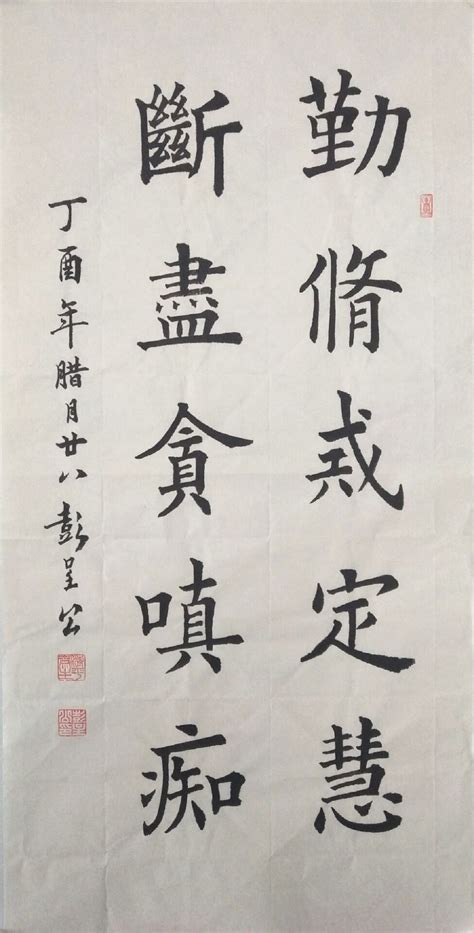 勤脩戒定慧
斷盡貪嗔痴
丁酉年腊月廿八彭呈公